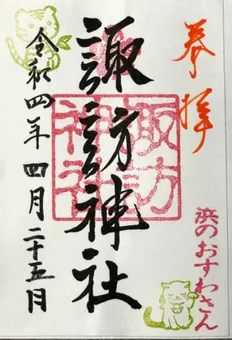 奉拝
諏訪神社
諏訪神社
浜のおすわさん
令和四年四月二十五日